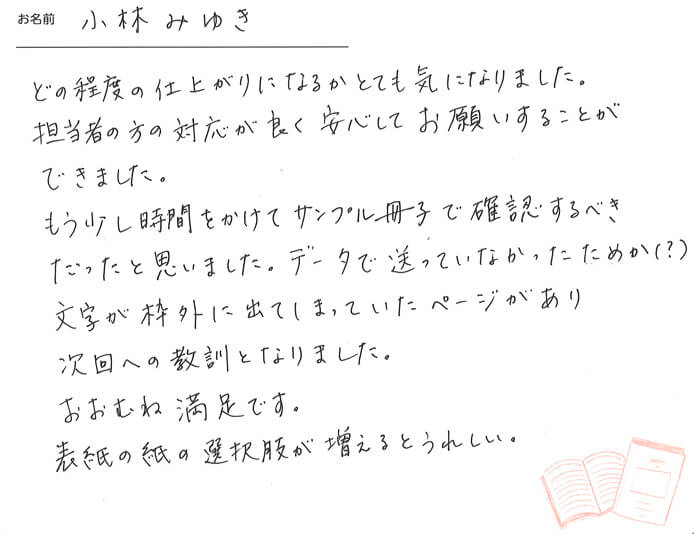 お名前 小林みゆき
どの程度の仕上がりになるかとても気になりました。
担当者の方の対応が良く安心してお願いすることが
できました。
もう少し時間をかけてサンプル冊子で確認するべき
だったと思いました。データで送っていなかったためか(?)
文字が枠外に出てしまっていたページがあり
次回への教訓となりました。
おおむね満足です。
表紙の紙の選択肢が増えるとうれしい。